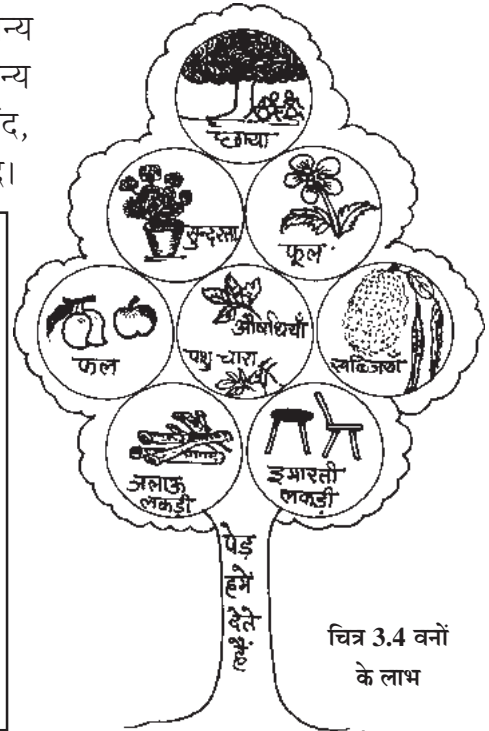 न्य
न्य
द,
छाया
सुन्दरता
फूल
फल
औषधियाँ
पशु चारा
सब्जियाँ
जलाऊ
लकड़ी
इमारती
लकड़ी
पेड़
हमें
देते
हैं
चित्र 3.4 वनों
के लाभ